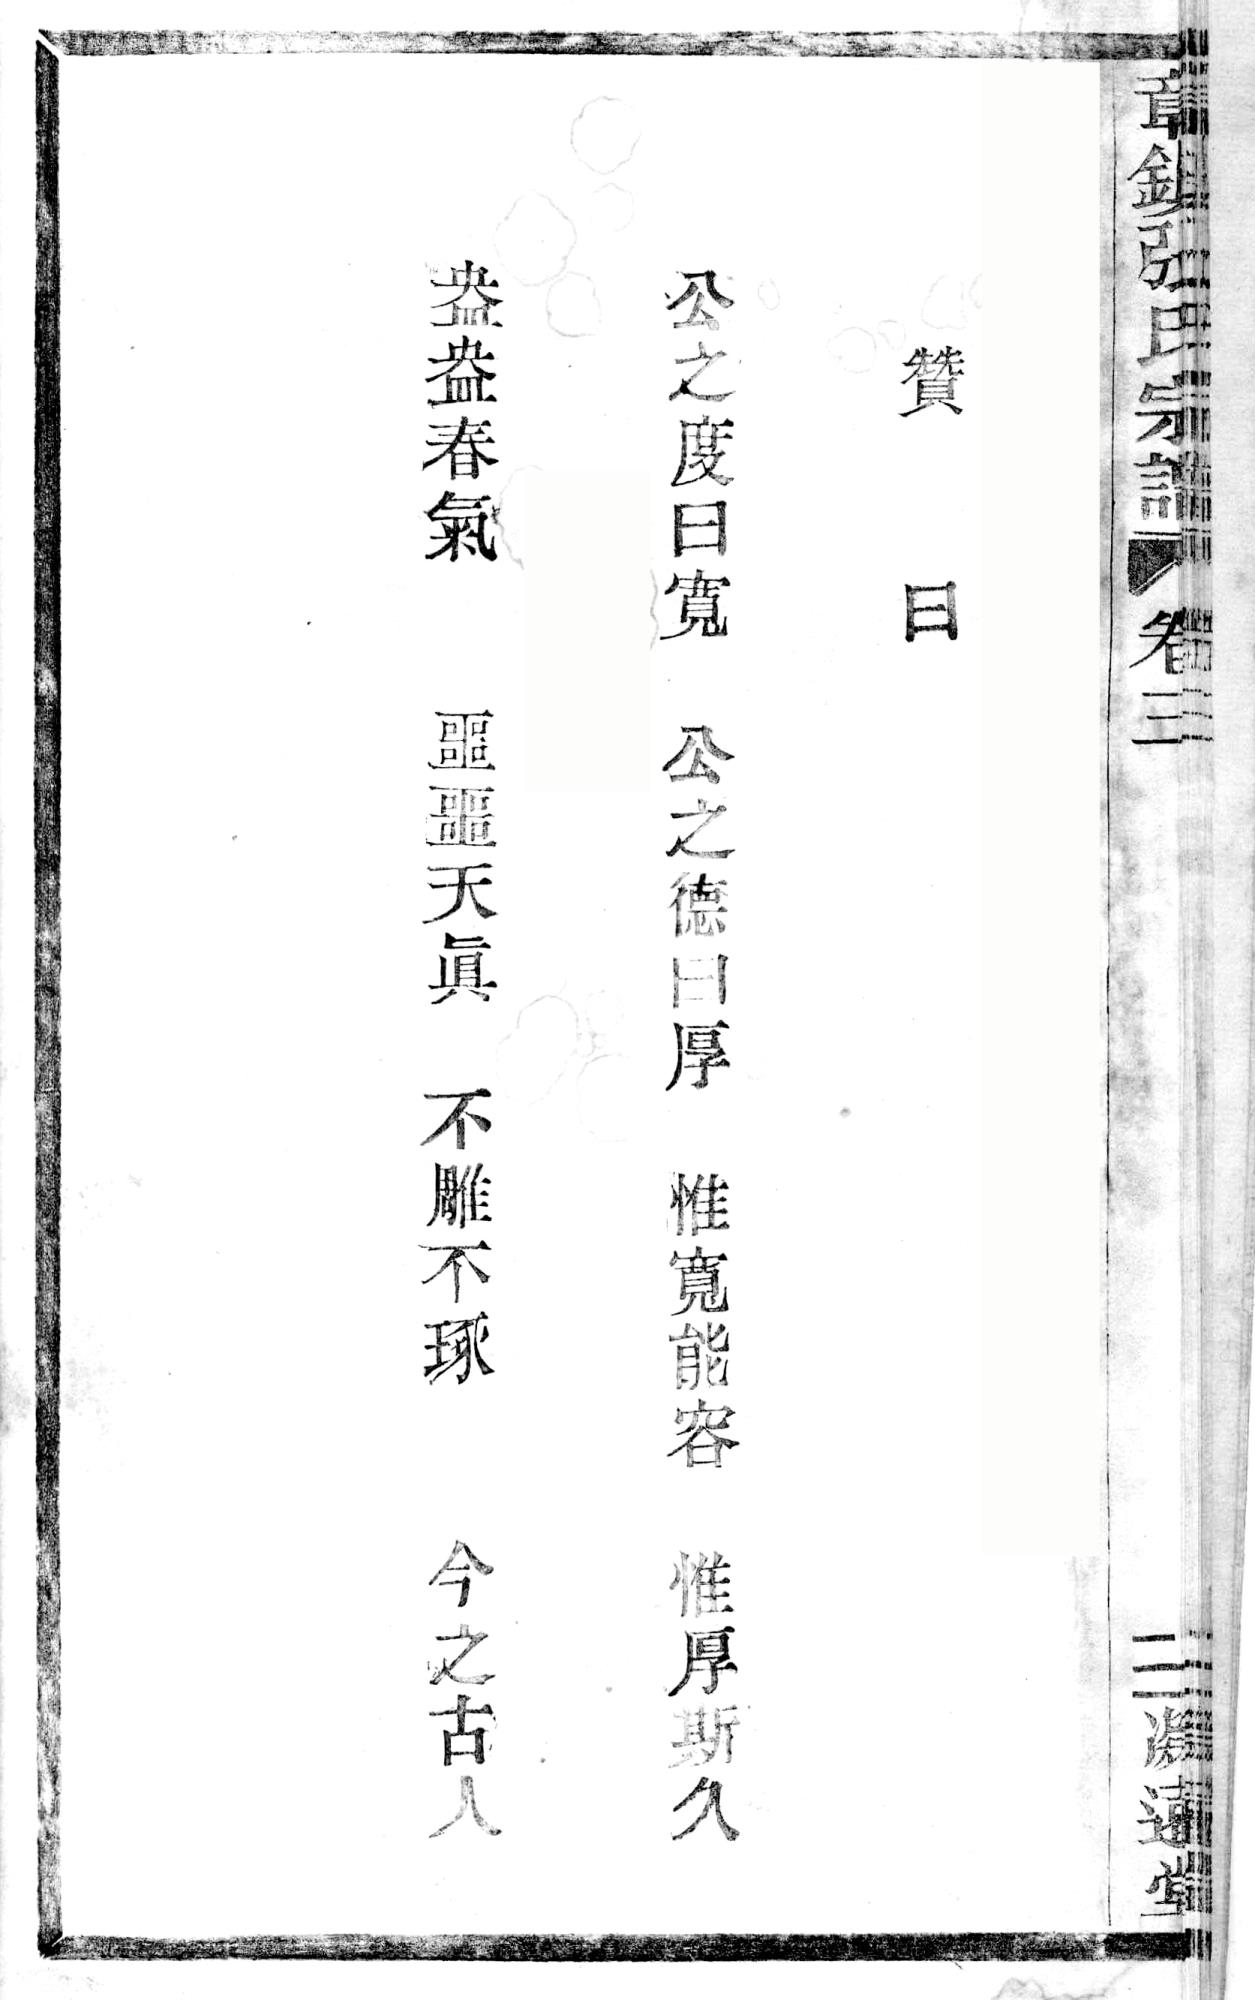 章鎮張氏宗譜 卷三 三 遠堂
贊曰
公之度曰寬 公之德曰厚 惟寬能容 惟厚斯久
盎盎春氣 噩噩天眞 不雕不琢 今之古人